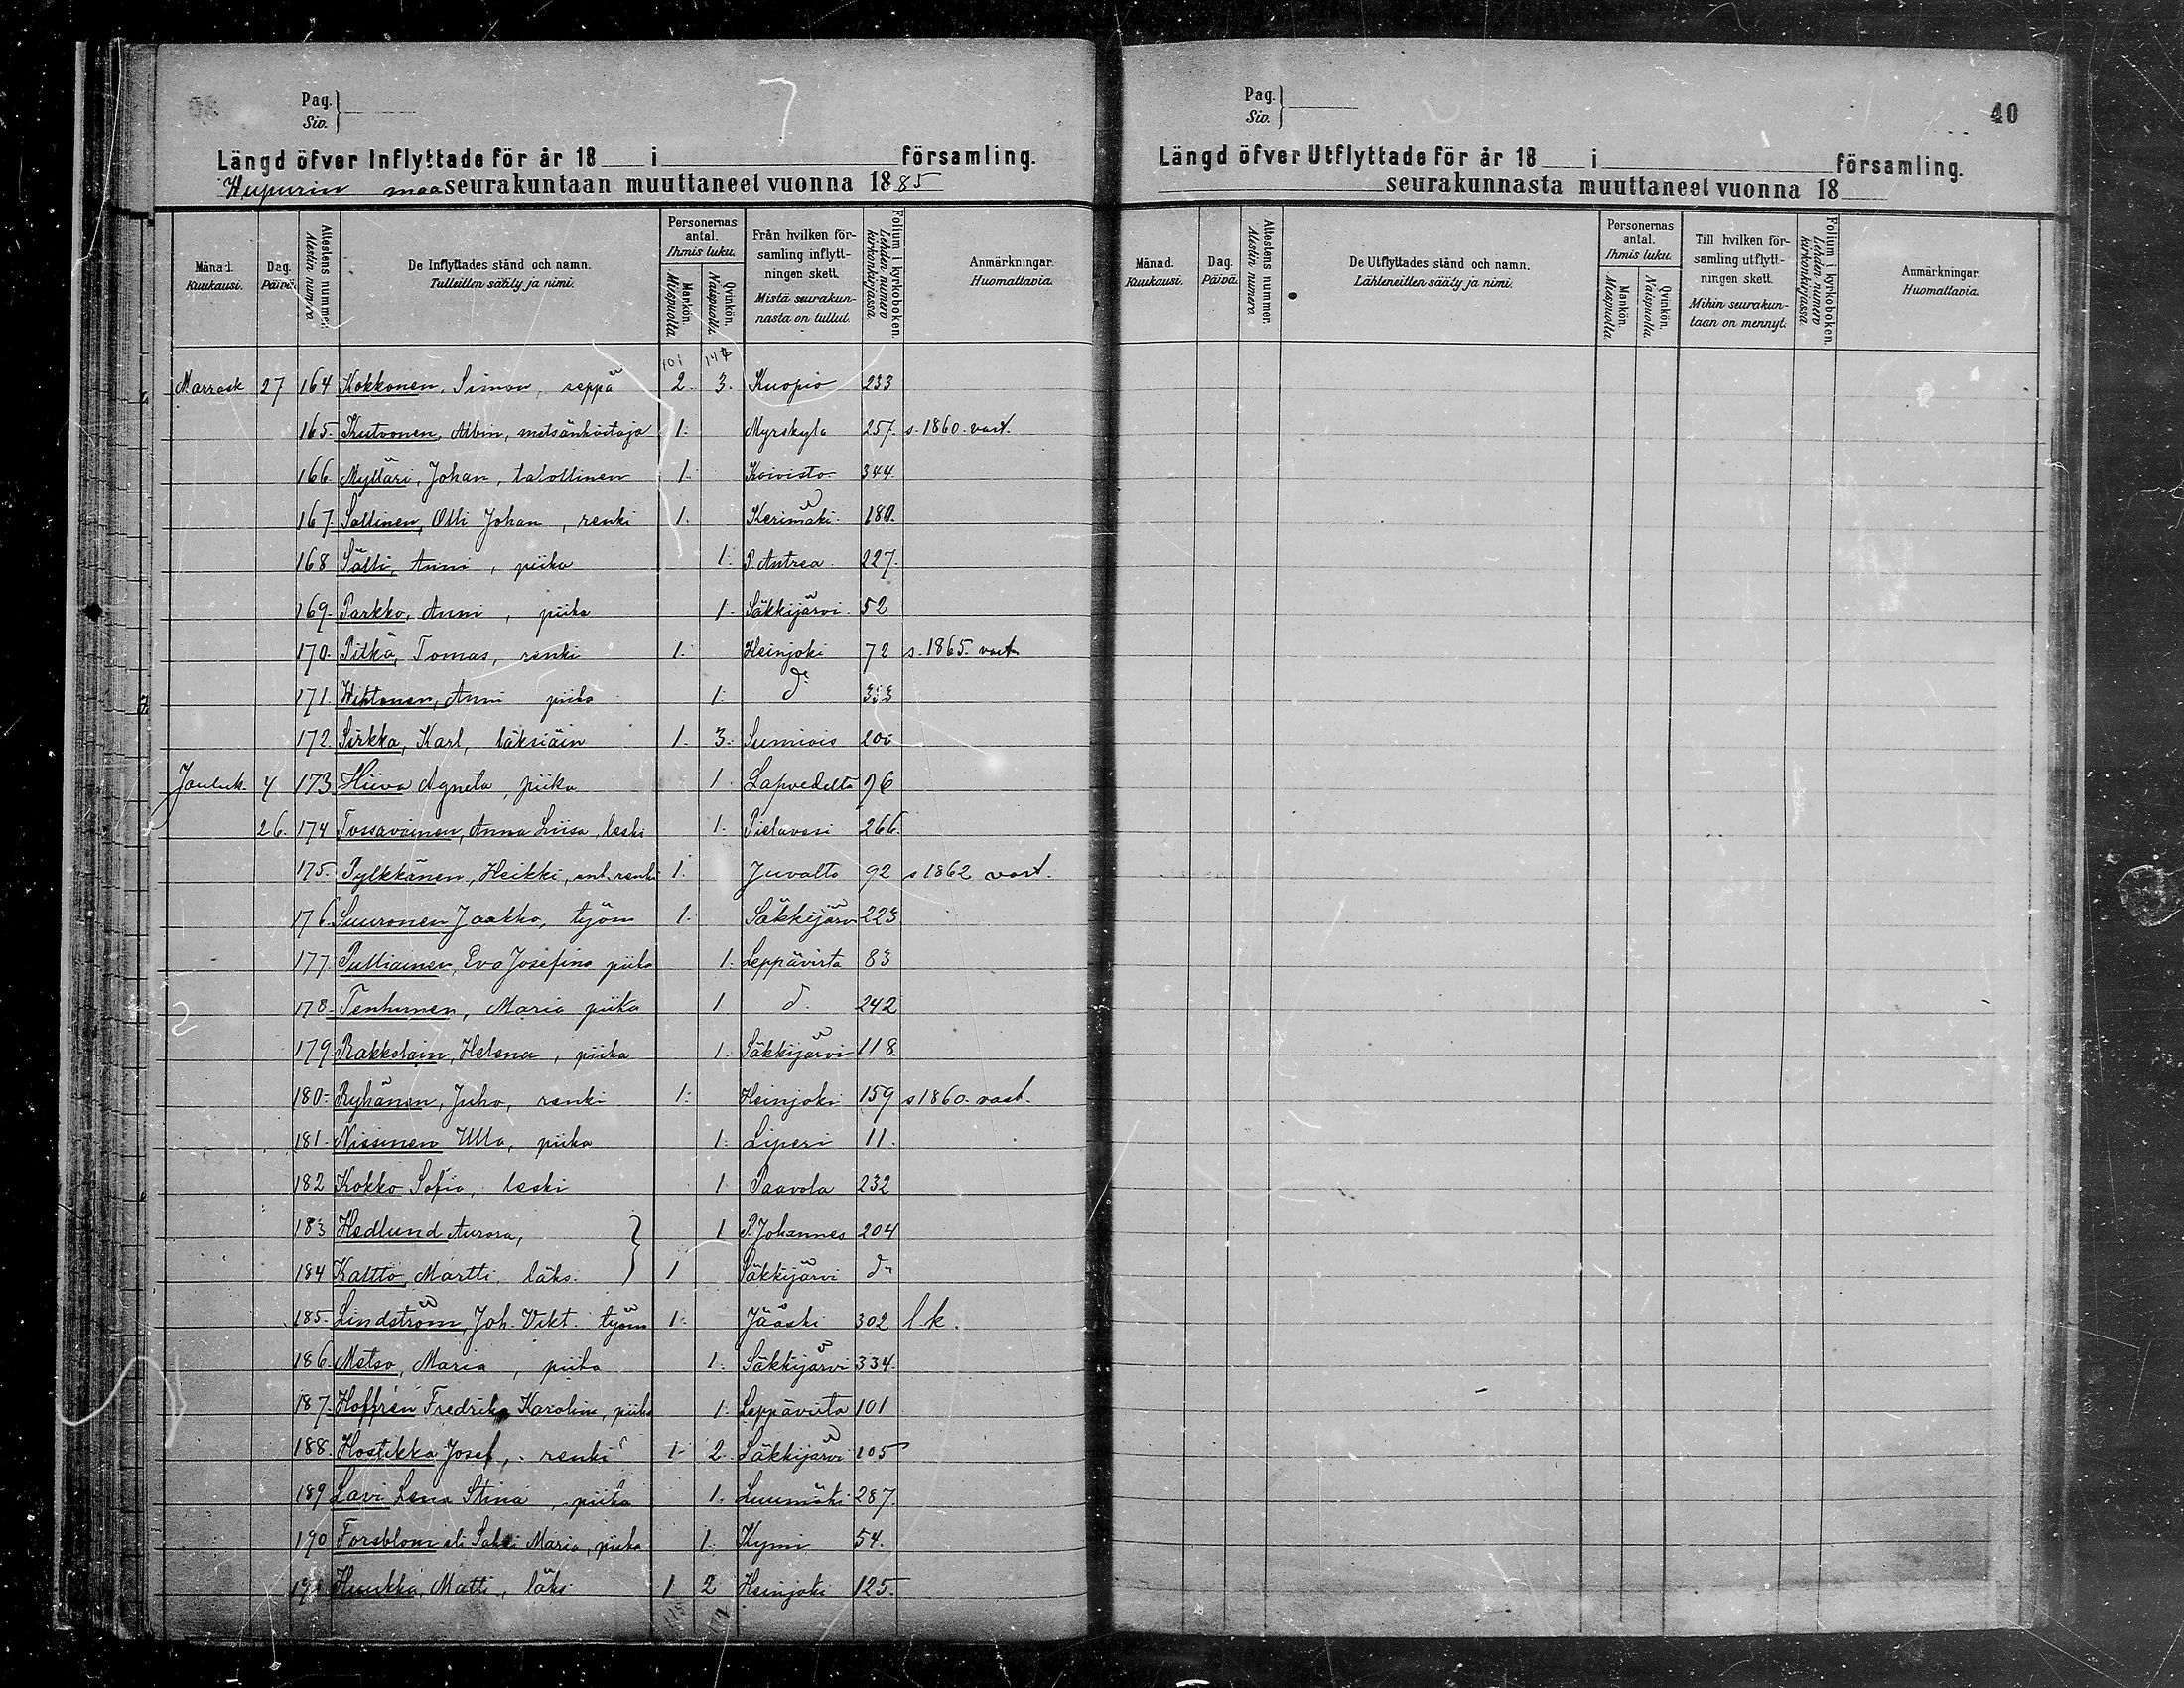 Pag.
Siv.
Längd öfver Inflyttade för år 18 i församling.
Wiipurin maaseurakuntaan muuttaneet vuonna 1885
Månad. Kuukausi.
Dag. Päivä.
Attestens nummer. Atestin numero.
De Inflyttades stånd och namn. Tulleitten sääty ja nimi.
Personernas antal. Ihmis luku.
Mankön. Miespuolta
Qvinkön. Naispuolta.
Från hvilken församling inflyttningen skett. Mistä seurakunnasta on tullut.
Folium i kyrkoboken. Lehden numero kirkonkirjassa
Anmärkningar. Huomattavia.
101 147
Marrask 27 164 Kokkonen, Simon, seppä 2. 3. Kuopio 233
165. Kutvonen, Albin, metsänhoitaja 1. Myrskyla 257. s. 1860. vast.
166. Mylläri, Johan, talollinen 1. Koivisto 344.
167. Sallinen, Olli Johan, renki 1. Kerimäki 180.
168 Sätti, Anni, piika 1. P. Antrea 227.
169. Parkko, Anni, piika 1. Säkkijärvi 52
170. Pitkä, Tomas, renki 1. Heinjoki 72 s. 1865. vast
171. Wihtonen, Anni piika 1. do 333
172. Sirkka, Karl, läksiäin 1. 3. Sumiais 200
Jouluk. 4 173 Hiiva Agneta, piika 1. Lapvedeltä 96
26. 174 Tossavainen, Anna Liisa, leski 1. Pielavesi 266.
175. Pylkkänen, Heikki, ent. renki 1. Juvalta 92 s 1862 vast.
176. Suuronen Jaakko, työm 1. Säkkijärvi 223
177. Pulliainen, Eva Josefina piika 1. Leppävirta 83
178. Tenhunen, Maria piika 1 d. 242
179 Rakkolain, Helena, piika 1. Säkkijärvi 118.
180. Ryhänen, Juho, renki 1. Heinjoki 159 s 1860. vast.
181. Nissinen Ulla, piika 1. Liperi 11.
182 Kokko Sofia, leski 1 Paavola 232
183 Hedlund Aurora, 1 P. Johannes 204
184 Kaltto, Martti, läks. 1 Säkkijärvi do
185. Lindström, Joh. Vikt. työm 1. Jääski 302 l.k.
186. Metso, Maria, piika 1. Säkkijärvi 334.
187. Hoffrén Fredrika Karolin, piika 1. Leppävirta 101
188. Hostikka Josef, renki 1. 2. Säkkijärvi 105
189 Lavi Lena Stina, piika 1. Luumäki 287.
190 Forsblom eli Maria, piika 1. Kymi 54.
191 Huukka, Matti, läks. 1 2 Heinjoki 125.
Pag.
Siv.
40
Längd öfver Utflyttade för år 18 i församling.
seurakunnasta muuttaneet vuonna 18
Månad. Kuukausi.
Dag. Päivä.
Attestens nummer. Atestin numero.
De Utflyttades stånd och namn. Lähteneitten sääty ja nimi.
Personernas antal. Ihmis luku.
Mankön. Miespuolta
Qvinkön. Naispuolta.
Till hvilken församling utflyttningen skett. Mihin seurakuntaan on mennyt.
Folium i kyrkoboken. Lehden numero kirkonkirjassa.
Anmärkningar. Huomattavia.